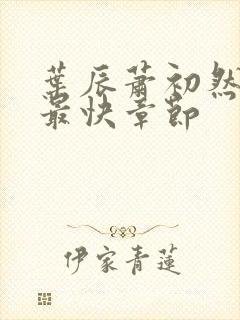 葉辰蕭初然
最快章節
伊家青蓮